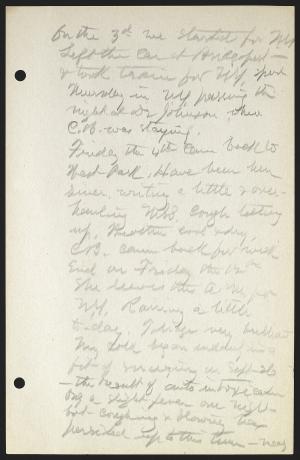 On the 3d we started for N.Y.
Left the Car at Bridgeport —
& took train for N.Y., spent
Thursday in N.Y. passing the
night at Dr Johnson where
C.B. was staying.
Friday the 4th Came back to
West Park, Have been here
since, writing a little & over-
hauling W.W. Cough letting
up. Weather cool & dry,
C.B. came back for week
End on Friday the 12th
She leaves this A.M. for
N.Y. Raining a little
to-day. Foliage very brilliant
My cold began suddenly in a
fit of sneezing on Sept 26
— the result of auto intoxication
a slight fever one night —
but coughing & blowing has
persisted up to this time —